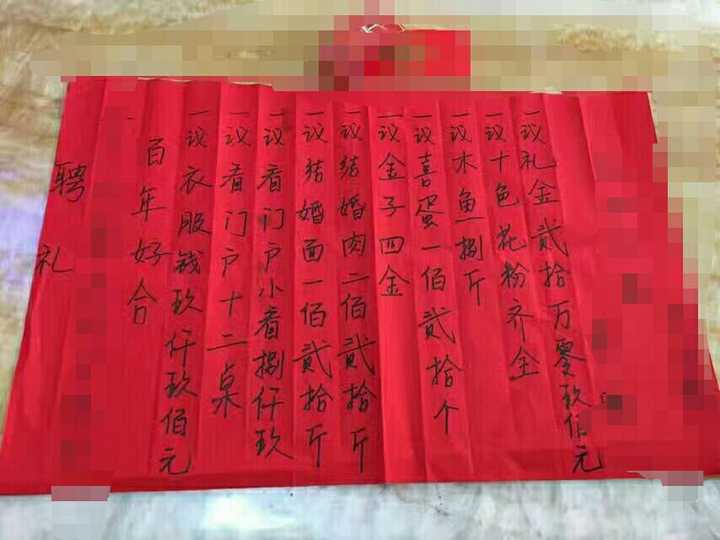 一议礼金贰拾万零玖佰元
一议十色花粉齐全
一议木鱼捌斤
一议喜蛋一佰贰拾个
一议金子四金
一议结婚肉二佰贰拾斤
一议结婚面一佰贰拾斤
一议看门户小看捌仟玖
一议看门户十二桌
一议衣服钱玖仟玖佰元
百年好合
聘礼